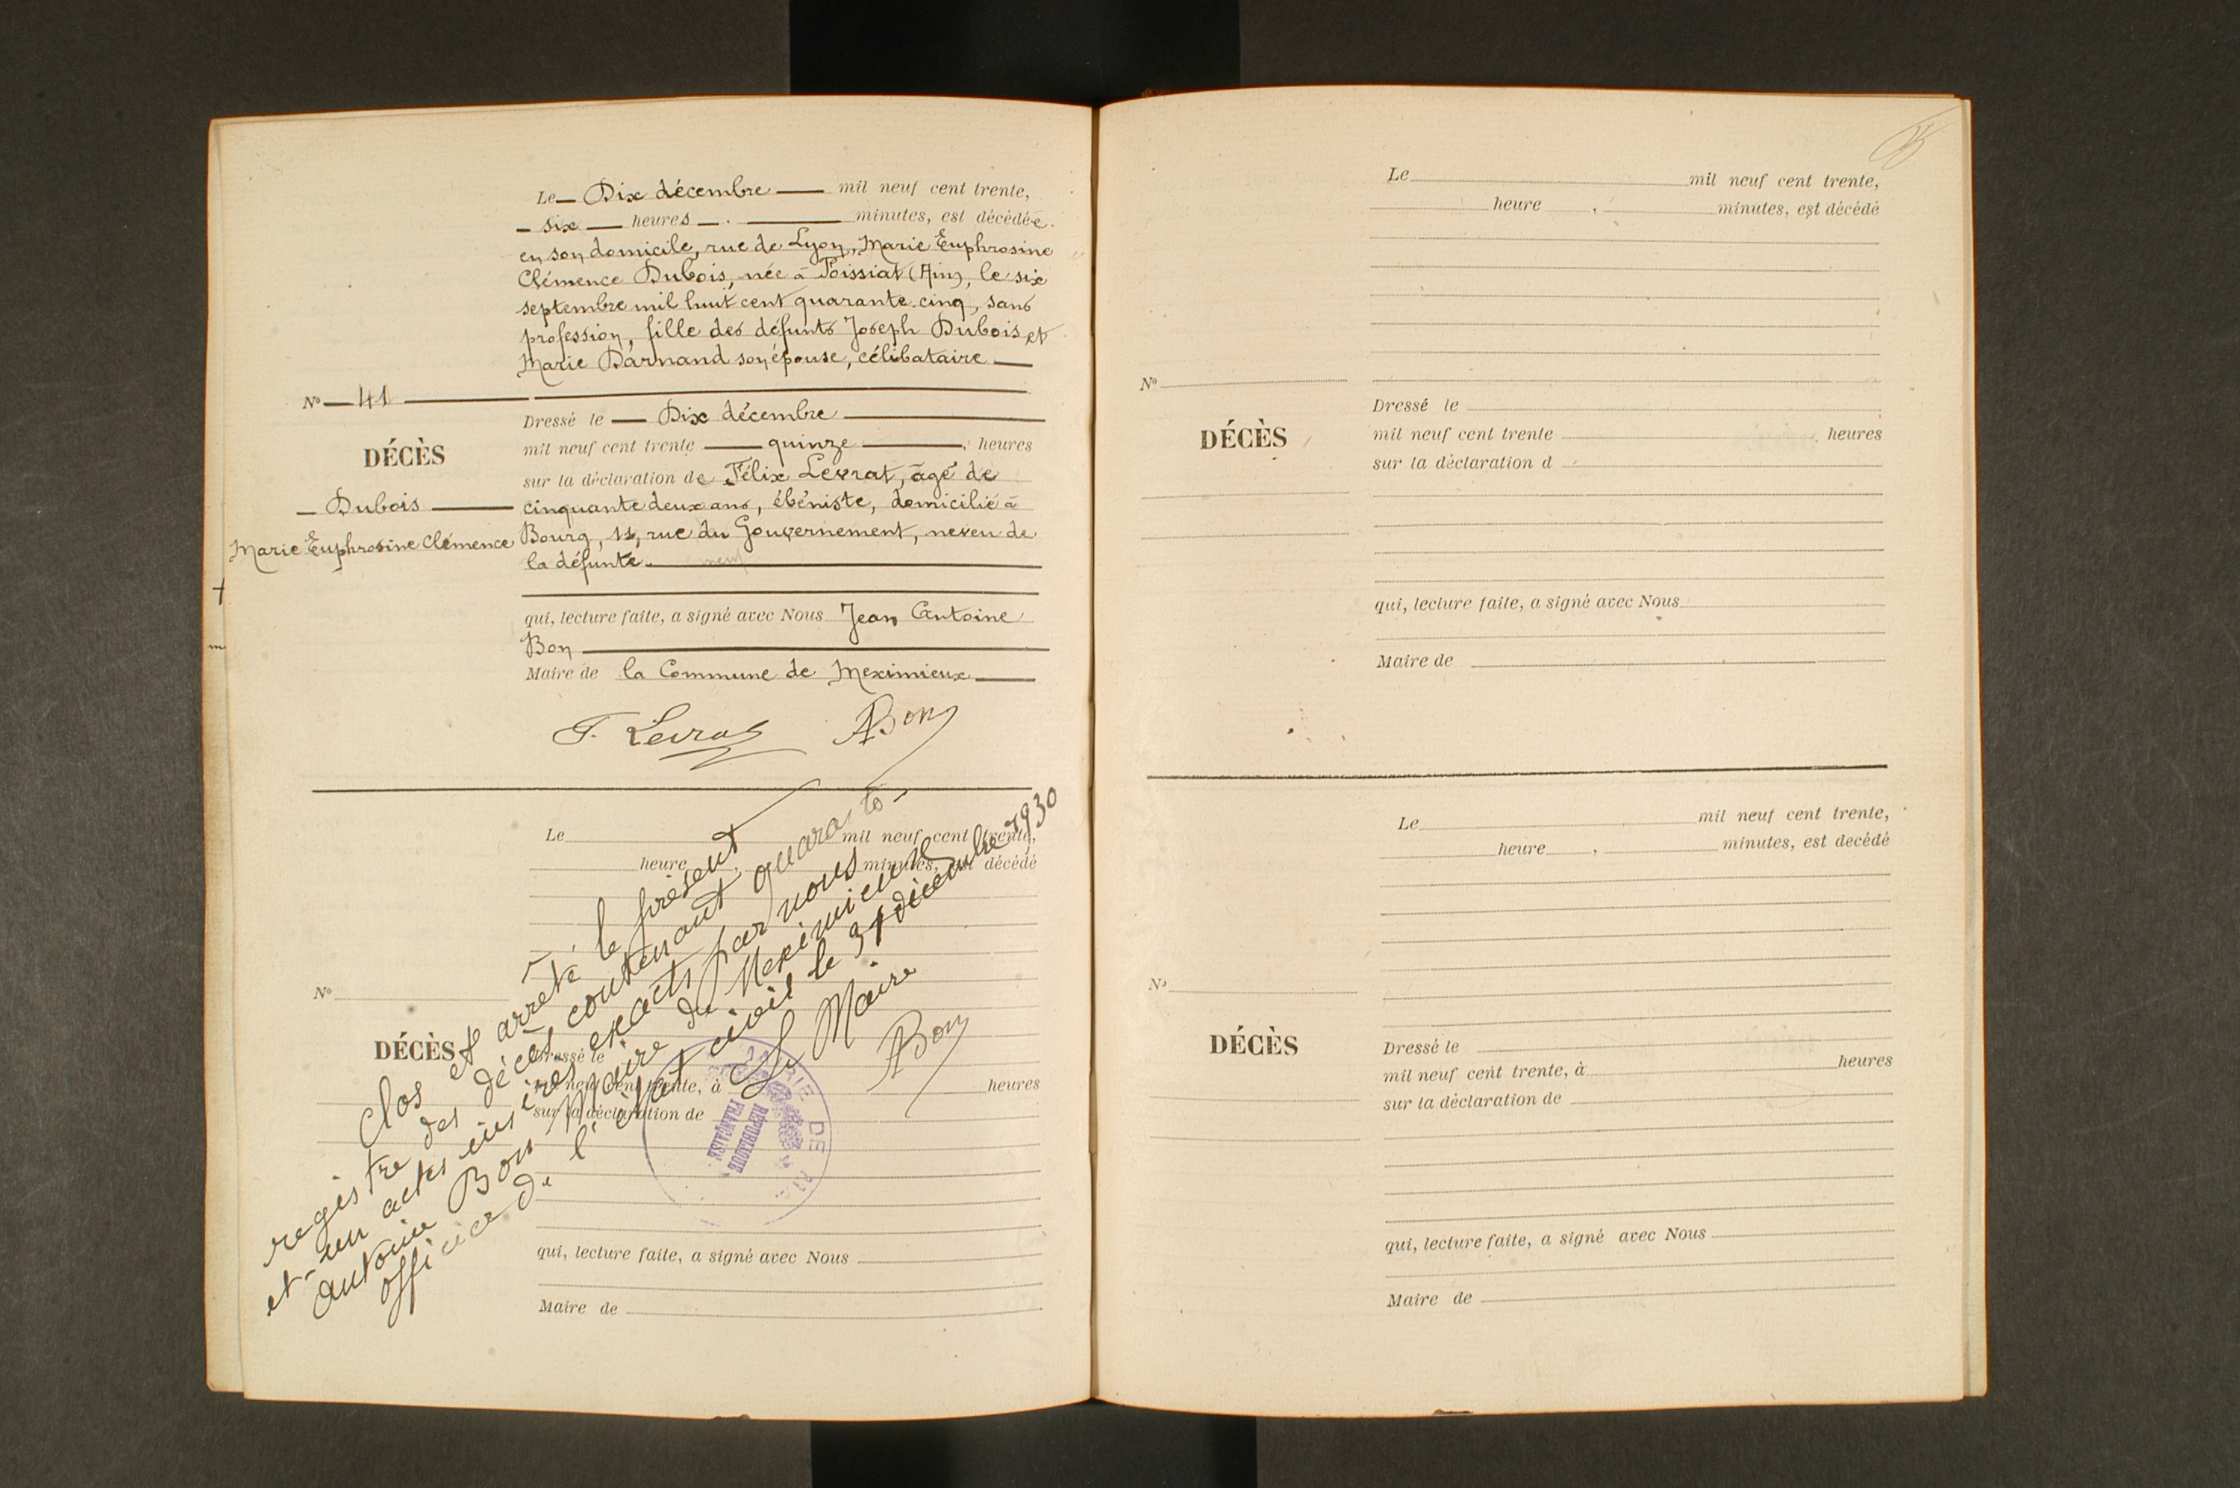 Le Dix décembre mil neuf cent trente,
six heures . minutes, est décédée
en son domicile, rue de Lyon, Marie Euphrosine
Clémence Dubois, née à Poissiat (Ain), le six
septembre mil huit cent quarante-cinq, sans
profession, fille des défunts Joseph Dubois et
Marie Darnand son épouse, célibataire
N° 41
DÉCÈS
Dubois
Marie Euphrosine Clémence
Dressé le Dix décembre
mil neuf cent trente quinze heures
sur la déclaration de Félix Levrat, âgé de
cinquante deux ans, ébéniste, domicilié à
Bourg, 11, rue du Gouvernement, neveu de
la défunte.
qui, lecture faite, a signé avec Nous Jean Antoine
Bon
Maire de la Commune de Meximieux
F. Levrat
ABon
Le mil neuf cent trente,
heure minutes, est décédé
N°
DÉCÈS
Dressé le
mil neuf cent trente, à heures
sur la déclaration de
qui, lecture faite, a signé avec Nous
Maire de
Clos et arrêté le présent
registre des décès contenant quarante
et un actes
Antoine Bon Maire de Meximieux
officier de l'état civil le 31 décembre 1930
Le Maire
ABon
MAIRIE DE
RÉPUBLIQUE
FRANÇAISE
Le mil neuf cent trente,
heure , minutes, est décédé
N°
DÉCÈS
Dressé le
mil neuf cent trente heures
sur la déclaration d
qui, lecture faite, a signé avec Nous
Maire de
Le mil neuf cent trente,
heure , minutes, est decédé
N°
DÉCÈS
Dressé le
mil neuf cent trente, à heures
sur la déclaration de
qui, lecture faite, a signé avec Nous
Maire de